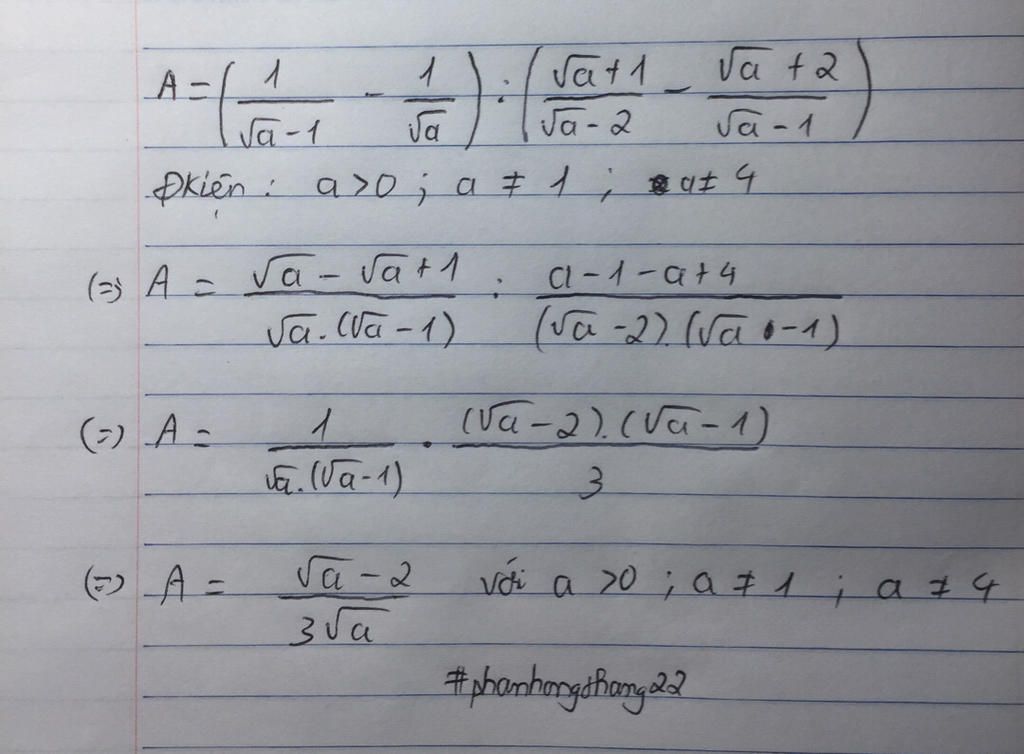 A = (1/(√a - 1) - 1/√a) : ((√a + 1)/(√a - 2) - (√a + 2)/(√a - 1))
Đkiện : a > 0 ; a ≠ 1 ; a ≠ 4
(=) A = (√a - √a + 1)/(√a . (√a - 1)) : (a - 1 - a + 4)/((√a - 2) . (√a - 1))
(=) A = 1/(√a . (√a - 1)) . ((√a - 2) . (√a - 1))/3
(=) A = (√a - 2)/(3√a) với a > 0 ; a ≠ 1 ; a ≠ 4
#phanhongthang22